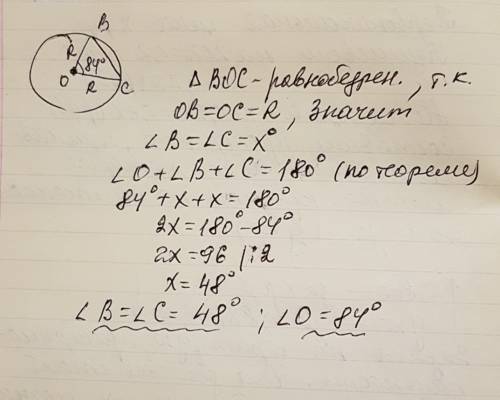 B
R 84°
O R C
△BOC - равнобедрен., т.к.
OB=OC=R, значит
∠B=∠C=x°
∠O+∠B+∠C=180° (по теореме)
84°+x+x=180°
2x=180°-84°
2x=96 /:2
x=48°
∠B=∠C=48° ; ∠O=84°